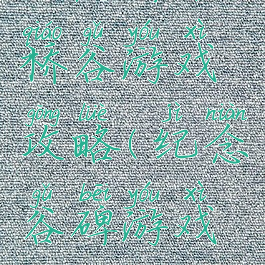 qiáo gǔ yóu xì
桥谷游戏
gōng lüè jì niàn
攻略(纪念
gǔ bēi yóu xì
谷碑游戏